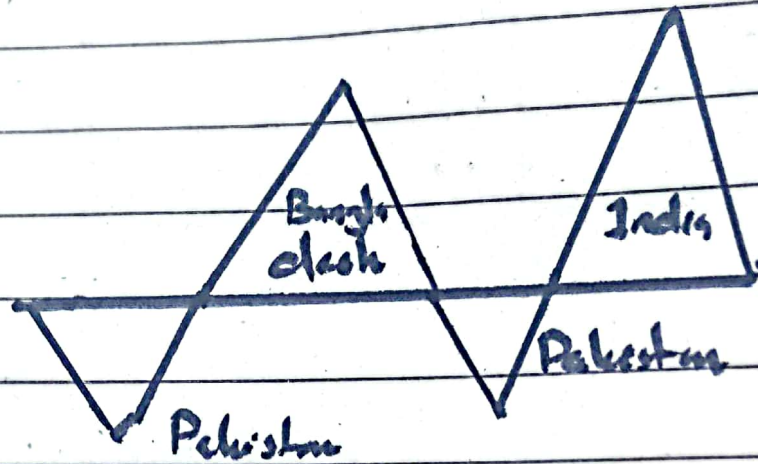 Bangla
desh
India
Pakistan
Pakistan